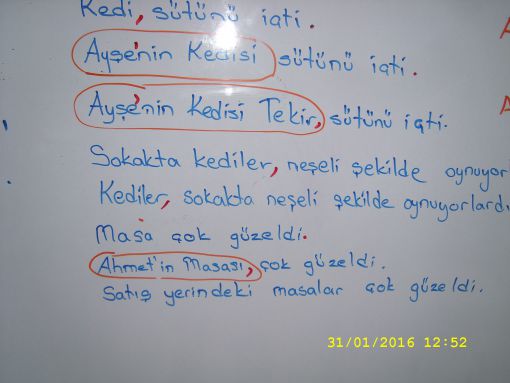 Kedi, sütünü içti.
Ayşe'nin Kedisi sütünü içti.
Ayşe'nin Kedisi Tekir, sütünü içti.
Sokakta kediler, neşeli şekilde oynuyor
Kediler, sokakta neşeli şekilde oynuyorlardı
Masa çok güzeldi.
Ahmet'in Masası, çok güzeldi.
Satış yerindeki masalar çok güzeldi.
31/01/2016 12:52